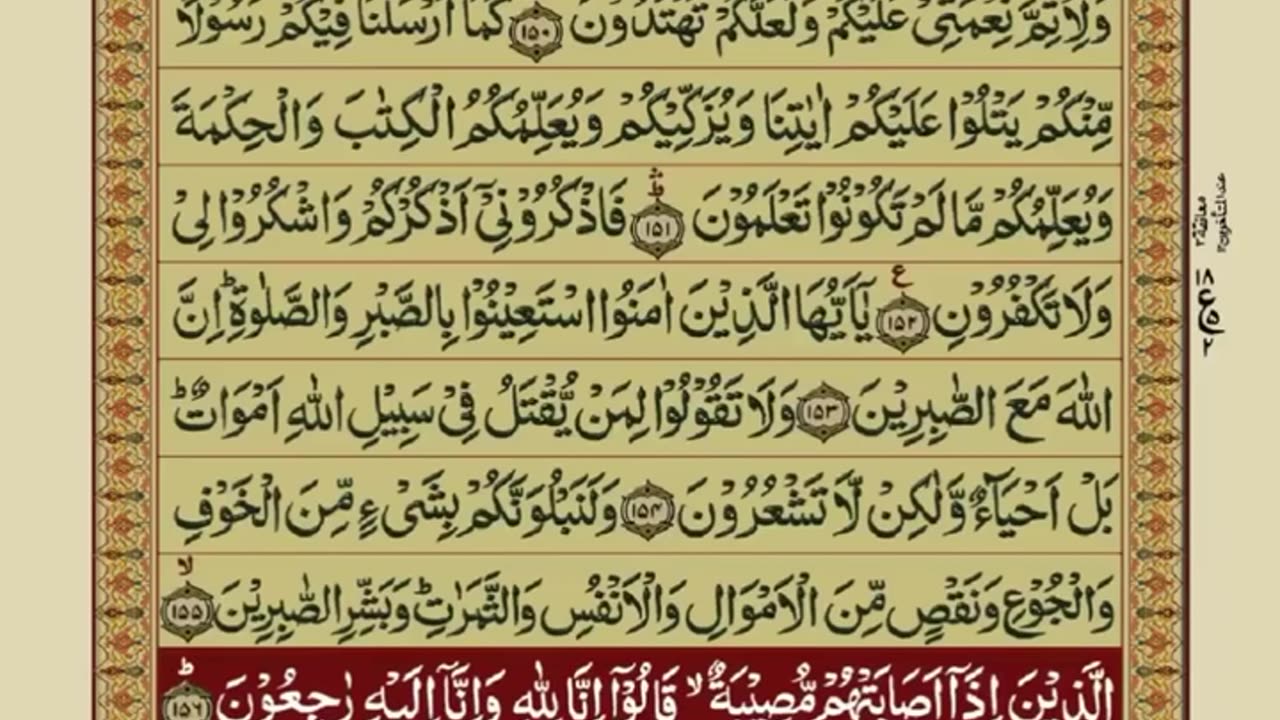 وَلِاُتِمَّ نِعْمَتِىْ عَلَيْكُمْ وَلَعَلَّكُمْ تَهْتَدُوْنَ ۱۵۰ كَمَاۤ اَرْسَلْنَا فِيْكُمْ رَسُوْلًا
مِّنْكُمْ يَتْلُوْا عَلَيْكُمْ اٰيٰتِنَا وَيُزَكِّيْكُمْ وَيُعَلِّمُكُمُ الْكِتٰبَ وَالْحِكْمَةَ
وَيُعَلِّمُكُمْ مَّا لَمْ تَكُوْنُوْا تَعْلَمُوْنَ ۱۵۱ فَاذْكُرُوْنِىْۤ اَذْكُرْكُمْ وَاشْكُرُوْا لِىْ
وَلَا تَكْفُرُوْنِ ۱۵۲ ع يٰۤاَيُّهَا الَّذِيْنَ اٰمَنُوا اسْتَعِيْنُوْا بِالصَّبْرِ وَالصَّلٰوةِ ؕ اِنَّ
اللّٰهَ مَعَ الصّٰبِرِيْنَ ۱۵۳ وَلَا تَقُوْلُوْا لِمَنْ يُّقْتَلُ فِىْ سَبِيْلِ اللّٰهِ اَمْوَاتٌ ؕ
بَلْ اَحْيَآءٌ وَّلٰكِنْ لَّا تَشْعُرُوْنَ ۱۵۴ وَلَنَبْلُوَنَّكُمْ بِشَىْءٍ مِّنَ الْخَوْفِ
وَالْجُوْعِ وَنَقْصٍ مِّنَ الْاَمْوَالِ وَالْاَنْفُسِ وَالثَّمَرٰتِ ؕ وَبَشِّرِ الصّٰبِرِيْنَ ۱۵۵ لا
الَّذِيْنَ اِذَاۤ اَصَابَتْهُمْ مُّصِيْبَةٌ ۙ قَالُوْۤا اِنَّا لِلّٰهِ وَاِنَّاۤ اِلَيْهِ رٰجِعُوْنَ ۱۵۶ ؕ
معانقة ۲
عند المتأخرين ۲
۱۸
ع
۲